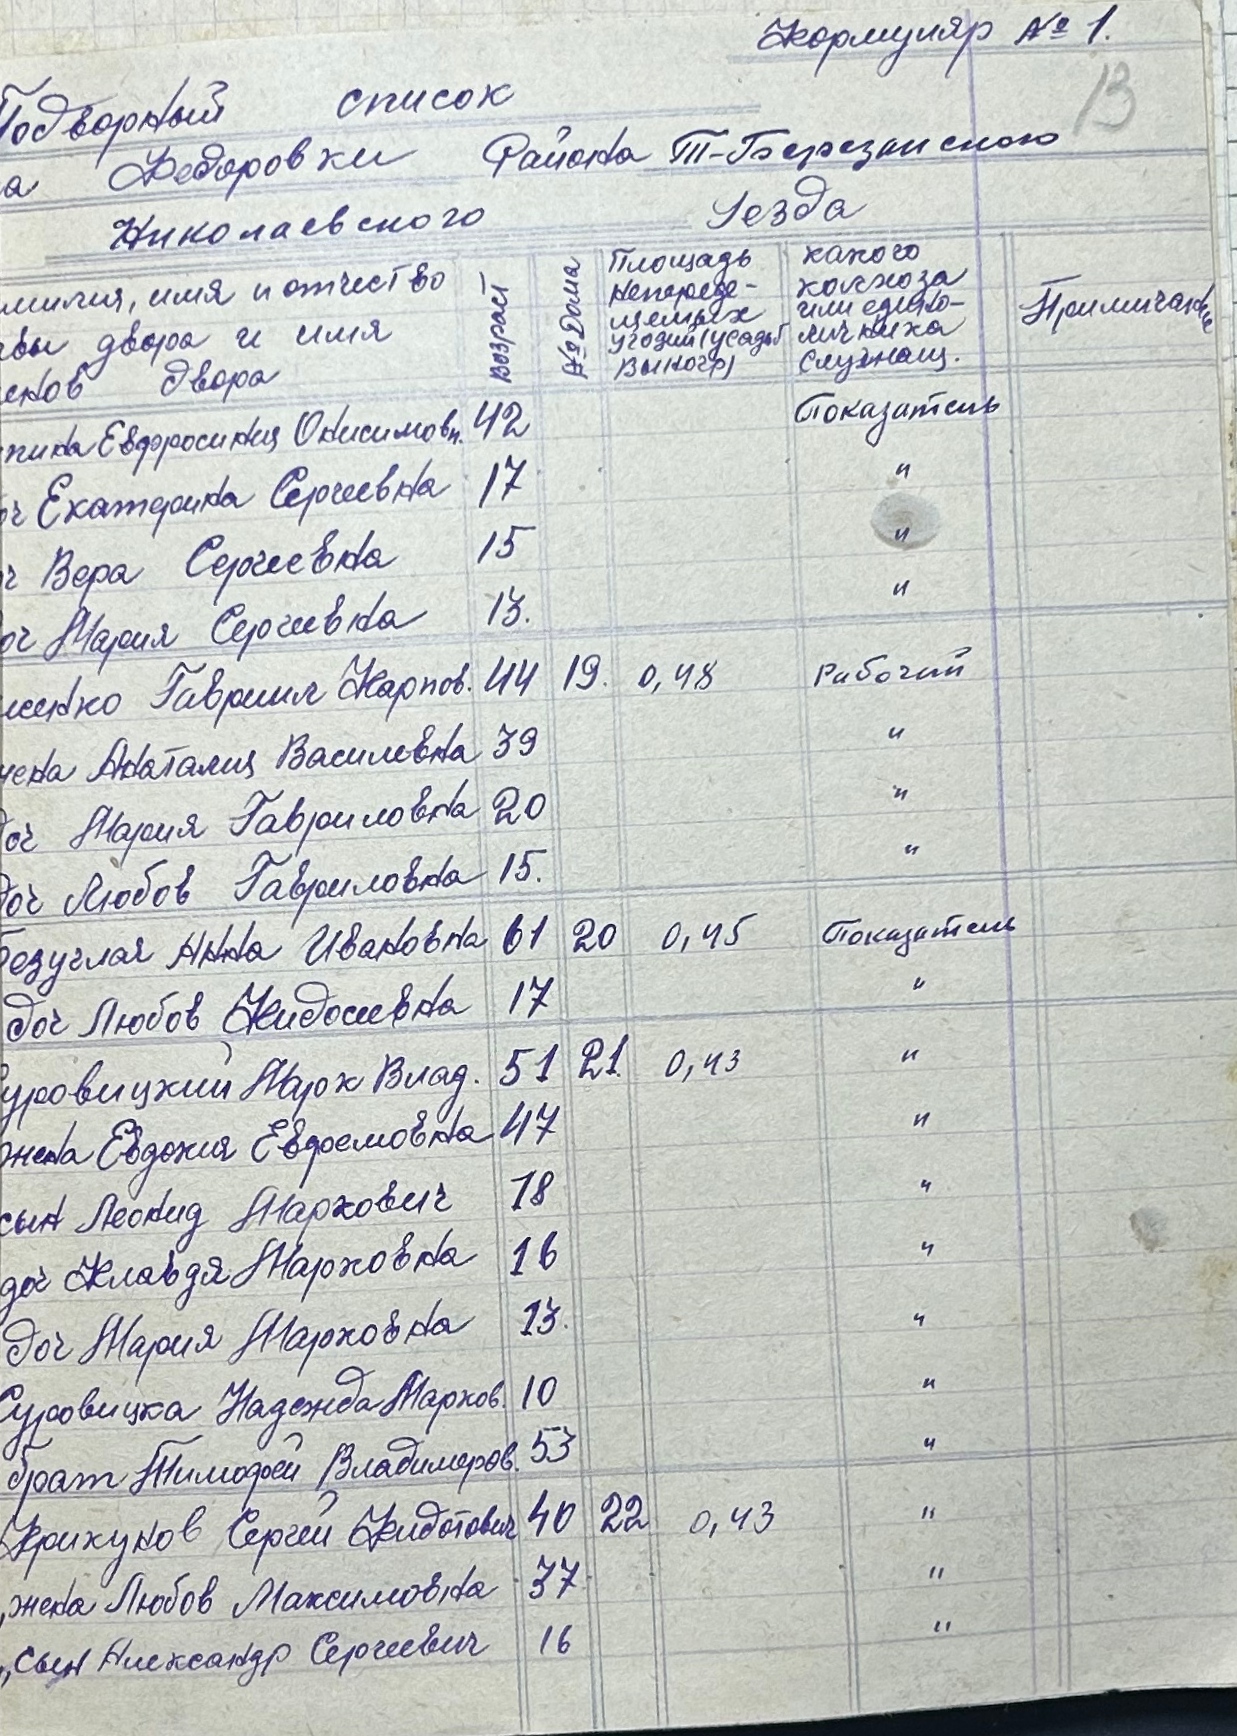 Формуляр № 1.
13
Подворный список
а Федоровки Района Т-Березанского
Николаевского Уезда
милия, имя и отчество
авы двора и имя
енов двора
Возраст
№ Дома
Площадь
непереде-
щемых
угодий (усадьб
выногр)
какого
колхоза
или едино-
личника
служащ.
Примичание
пика Евфросиния Онисимовн. 42 Показатель
оч Екатерина Сергеевна 17 "
ч Вера Сергеевна 15 "
оч Мария Сергеевна 13. "
енко Гавриил Карпов. 44 19. 0,48 Рабочий
жена Анаталия Василевна 39 "
доч Мария Гавриловна 20 "
доч Любов Гавриловна 15. "
Безуглая Анна Ивановна 61 20 0,45 Показатель
доч Любов 17 "
Суровицкий Марк Влад. 51 21. 0,43 "
жена Евдокия Евдоемовна 47 "
сын Леонид Маркович 18 "
доч Клавдя Марковна 16 "
доч Мария Марковна 13. "
Суровицка Надежда Марков. 10 "
брат Тимофей Владимиров. 53 "
Крикунов Сергей 40 22 0,43 "
жена Любов Максимовна 37 "
„ сын Александр Сергеевич 16 "